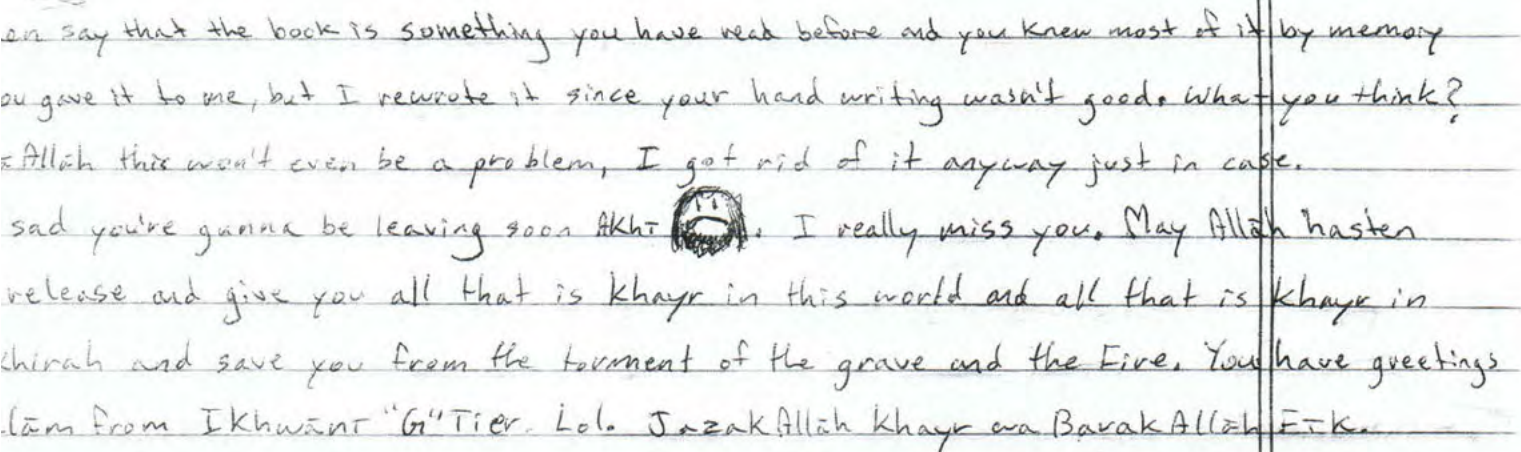 en say that the book is something you have read before and you knew most of it by memory
ou gave it to me, but I rewrote it since your hand writing wasn't good. What you think?
Allāh this won't even be a problem, I got rid of it anyway just in case.
sad you're gunna be leaving soon Akhī . I really miss you. May Allāh hasten
release and give you all that is khayr in this world and all that is khayr in
khirah and save you from the torment of the grave and the Fire. You have greetings
lām from Ikhwānī "G" Tier. Lol. JazakAllāh khayr wa BarakAllāh Fīk.